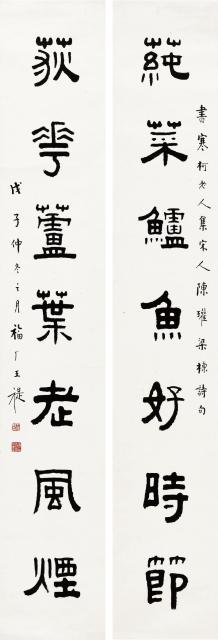 蒓菜鱸魚好時節
書寒柯老人集宋人陳瓘梁棟詩句
荻花蘆葉老風煙
戊子仲冬之月福厂王禔